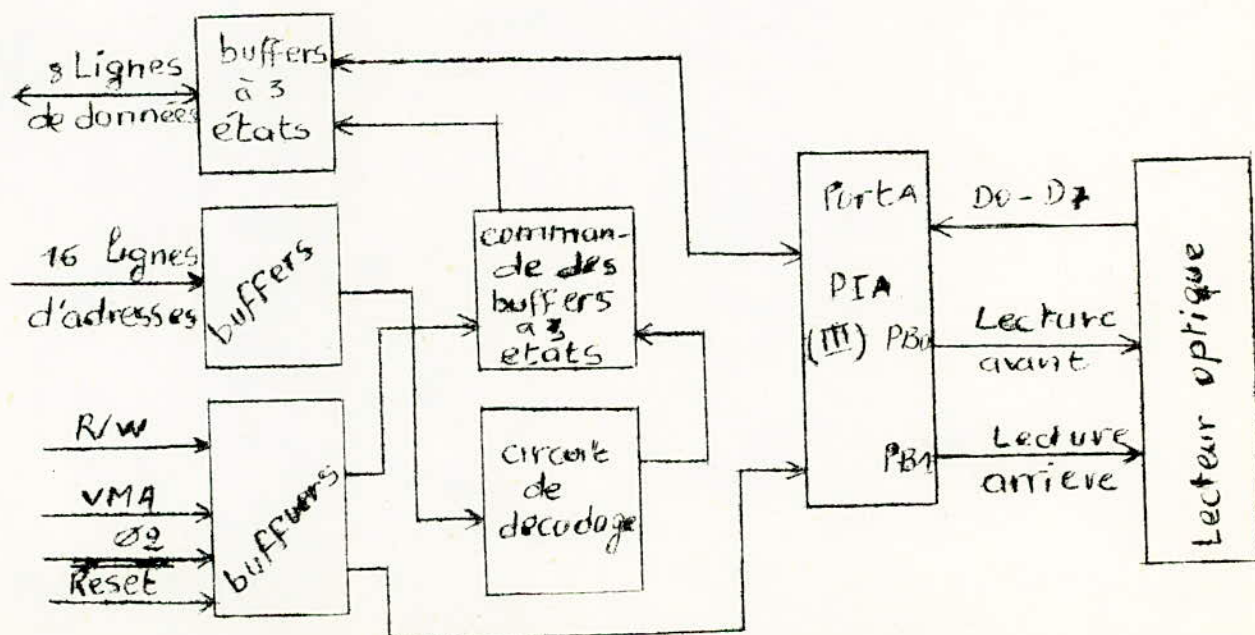 8 Lignes
de données
buffers
à 3
états
16 lignes
d'adresses
buffers
R/W
VMA
Ø2
Reset
buffuers
comman-
de des
buffers
a 3
etáts
circuit
de
decodage
Port A
PIA
(III) PB0
PB1
D0 - D7
Lecture
avant
Lecture
arrieve
Lecteur optique